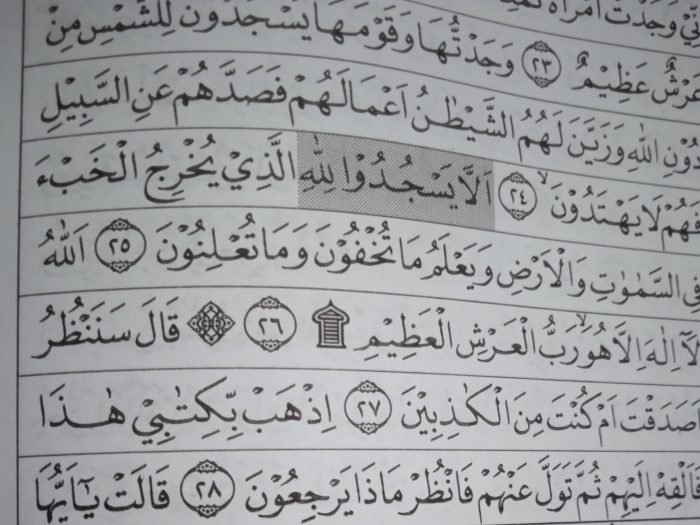 وَجَدْتُّ امْرَاَةً
عَرْشٌ عَظِيْمٌ ٢٣ وَجَدْتُّهَا وَقَوْمَهَا يَسْجُدُوْنَ لِلشَّمْسِ مِنْ
دُوْنِ اللّٰهِ وَزَيَّنَ لَهُمُ الشَّيْطٰنُ اَعْمَالَهُمْ فَصَدَّهُمْ عَنِ السَّبِيْلِ
فَهُمْ لَا يَهْتَدُوْنَۙ ٢٤ اَلَّا يَسْجُدُوْا لِلّٰهِ الَّذِيْ يُخْرِجُ الْخَبْءَ
فِى السَّمٰوٰتِ وَالْاَرْضِ وَيَعْلَمُ مَا تُخْفُوْنَ وَمَا تُعْلِنُوْنَ ٢٥ اَللّٰهُ
لَآ اِلٰهَ اِلَّا هُوَۙ رَبُّ الْعَرْشِ الْعَظِيْمِ ۩ ٢٦ ۞ قَالَ سَنَنْظُرُ
اَصَدَقْتَ اَمْ كُنْتَ مِنَ الْكٰذِبِيْنَ ٢٧ اِذْهَبْ بِّكِتٰبِيْ هٰذَا
فَاَلْقِهْ اِلَيْهِمْ ثُمَّ تَوَلَّ عَنْهُمْ فَانْظُرْ مَاذَا يَرْجِعُوْنَ ٢٨ قَالَتْ يٰٓاَيُّهَا